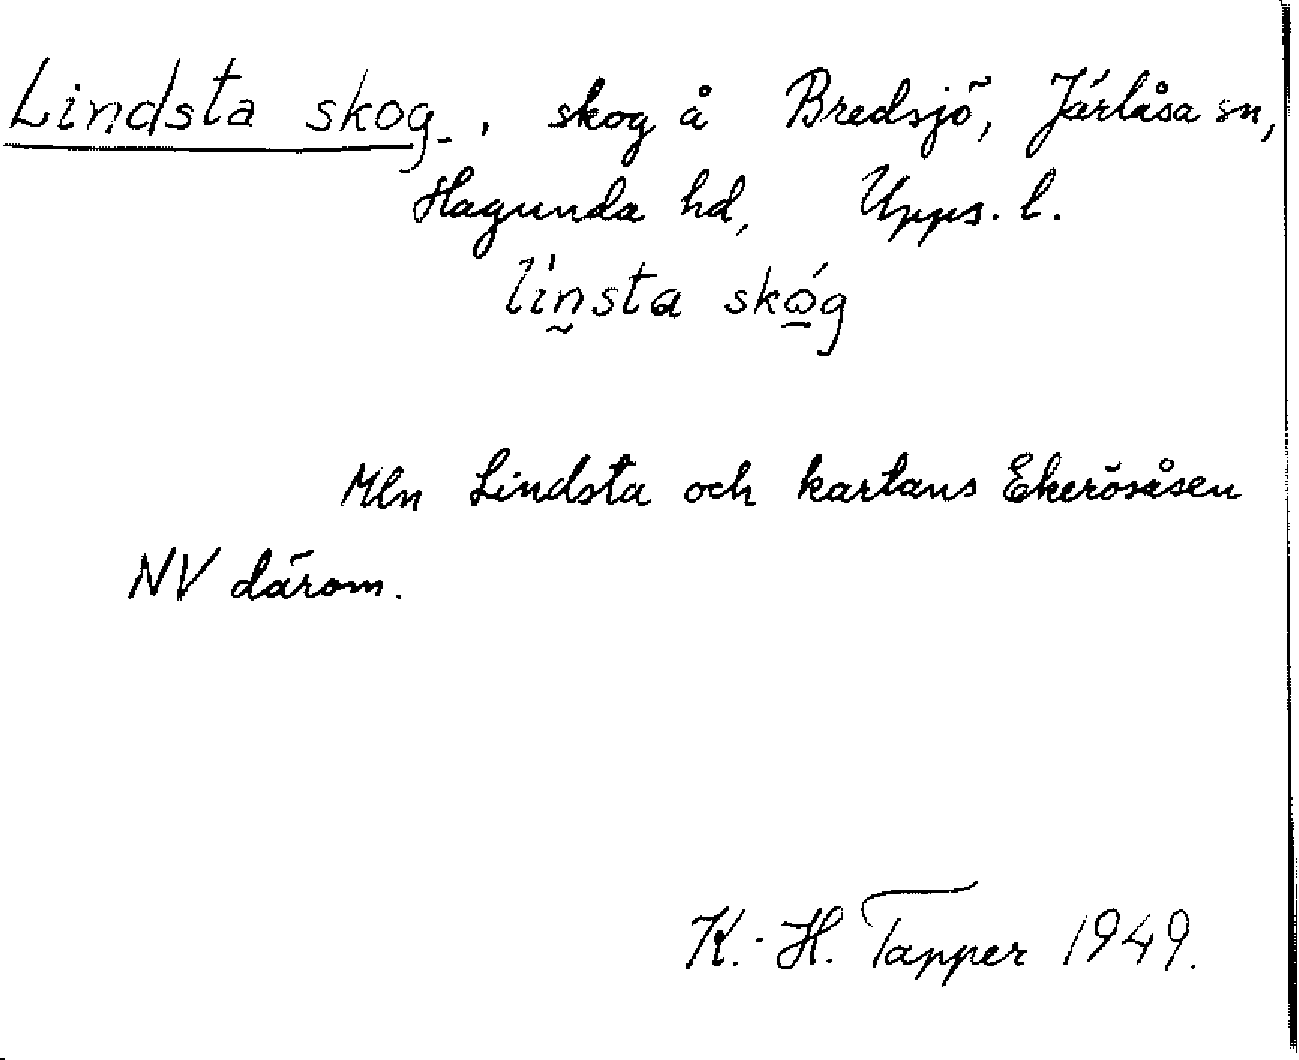 Lindsta skog, skog å Bredsjö, Järlåsa sn,
Hagunda hd, Upps. l.
lìn̰sta skó̲g
Mln Lindsta och kartans Ekerösåsen
NV därom.
K.-H. Tapper 1949.